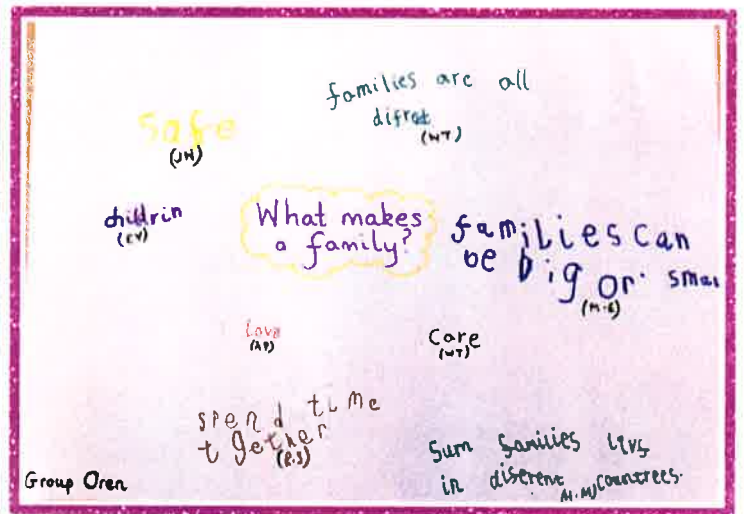 families are all
difret
(WT)
Safe
(JH)
childrin
(EV)
What makes
a family?
families can
be big or smal
(M.E)
Love
(AP)
Care
(WT)
spend time
t gether
(R.S)
Sum families livs
in diserent countrees.
(M.M)
Group Oren